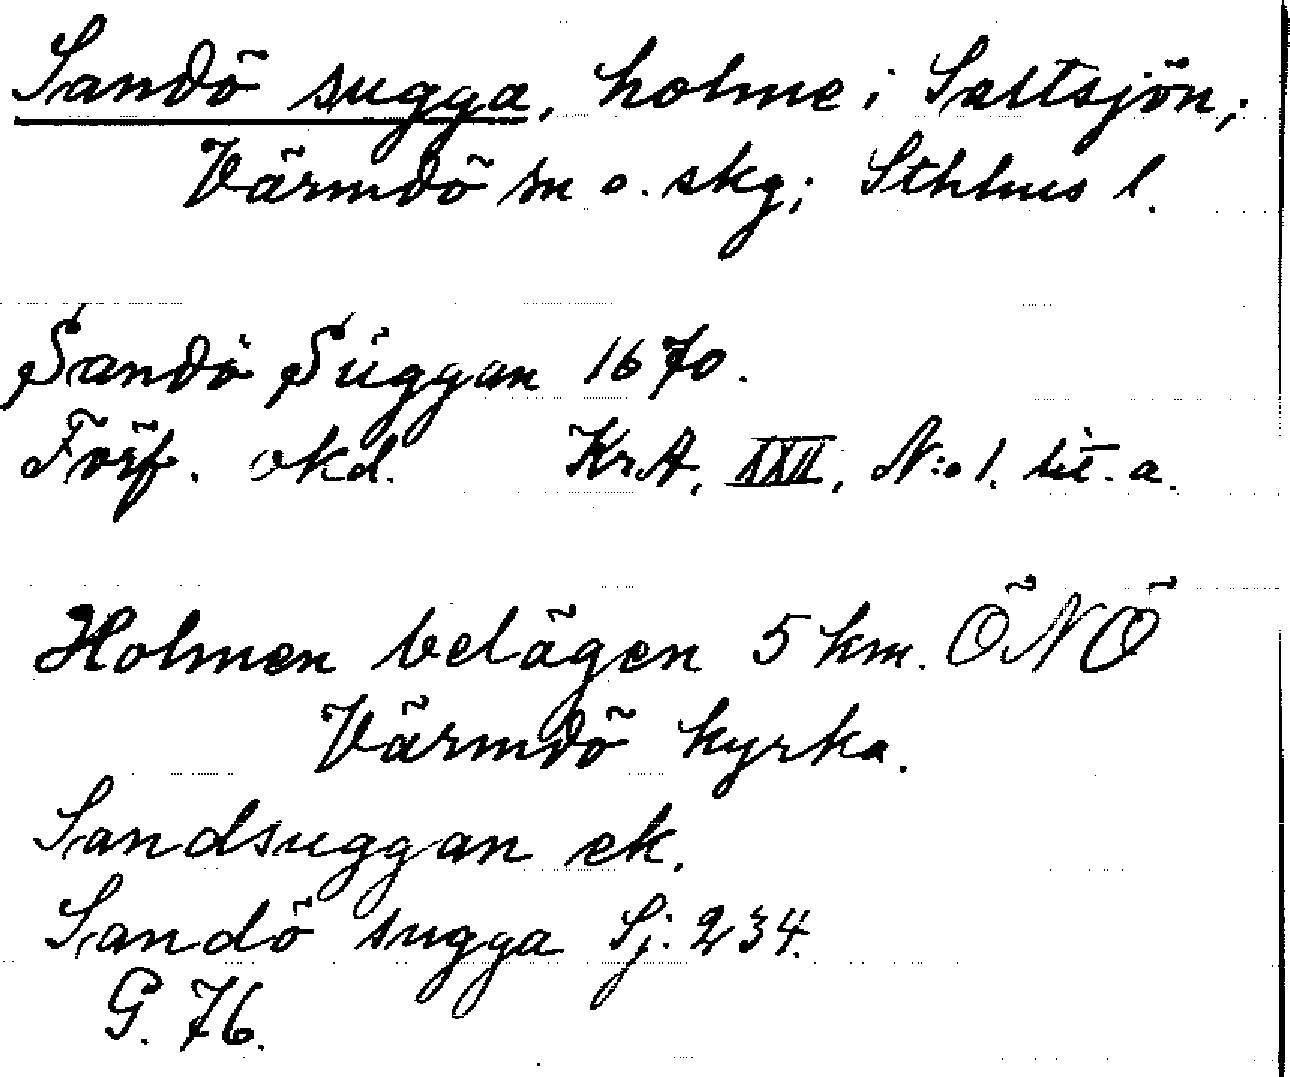 Sandö sugga, holme i Saltsjön;
Värmdö sn o. skg; Sthlms l.
Sandö Süggan 1670.
Förf. okd. Kr.A, XXII, N:o 1. lit. a.
Holmen belägen 5 km. ÖNÖ
Värmdö kyrka.
Sandsuggan ek.
Sandö sugga Sj. 234.
G. 76.